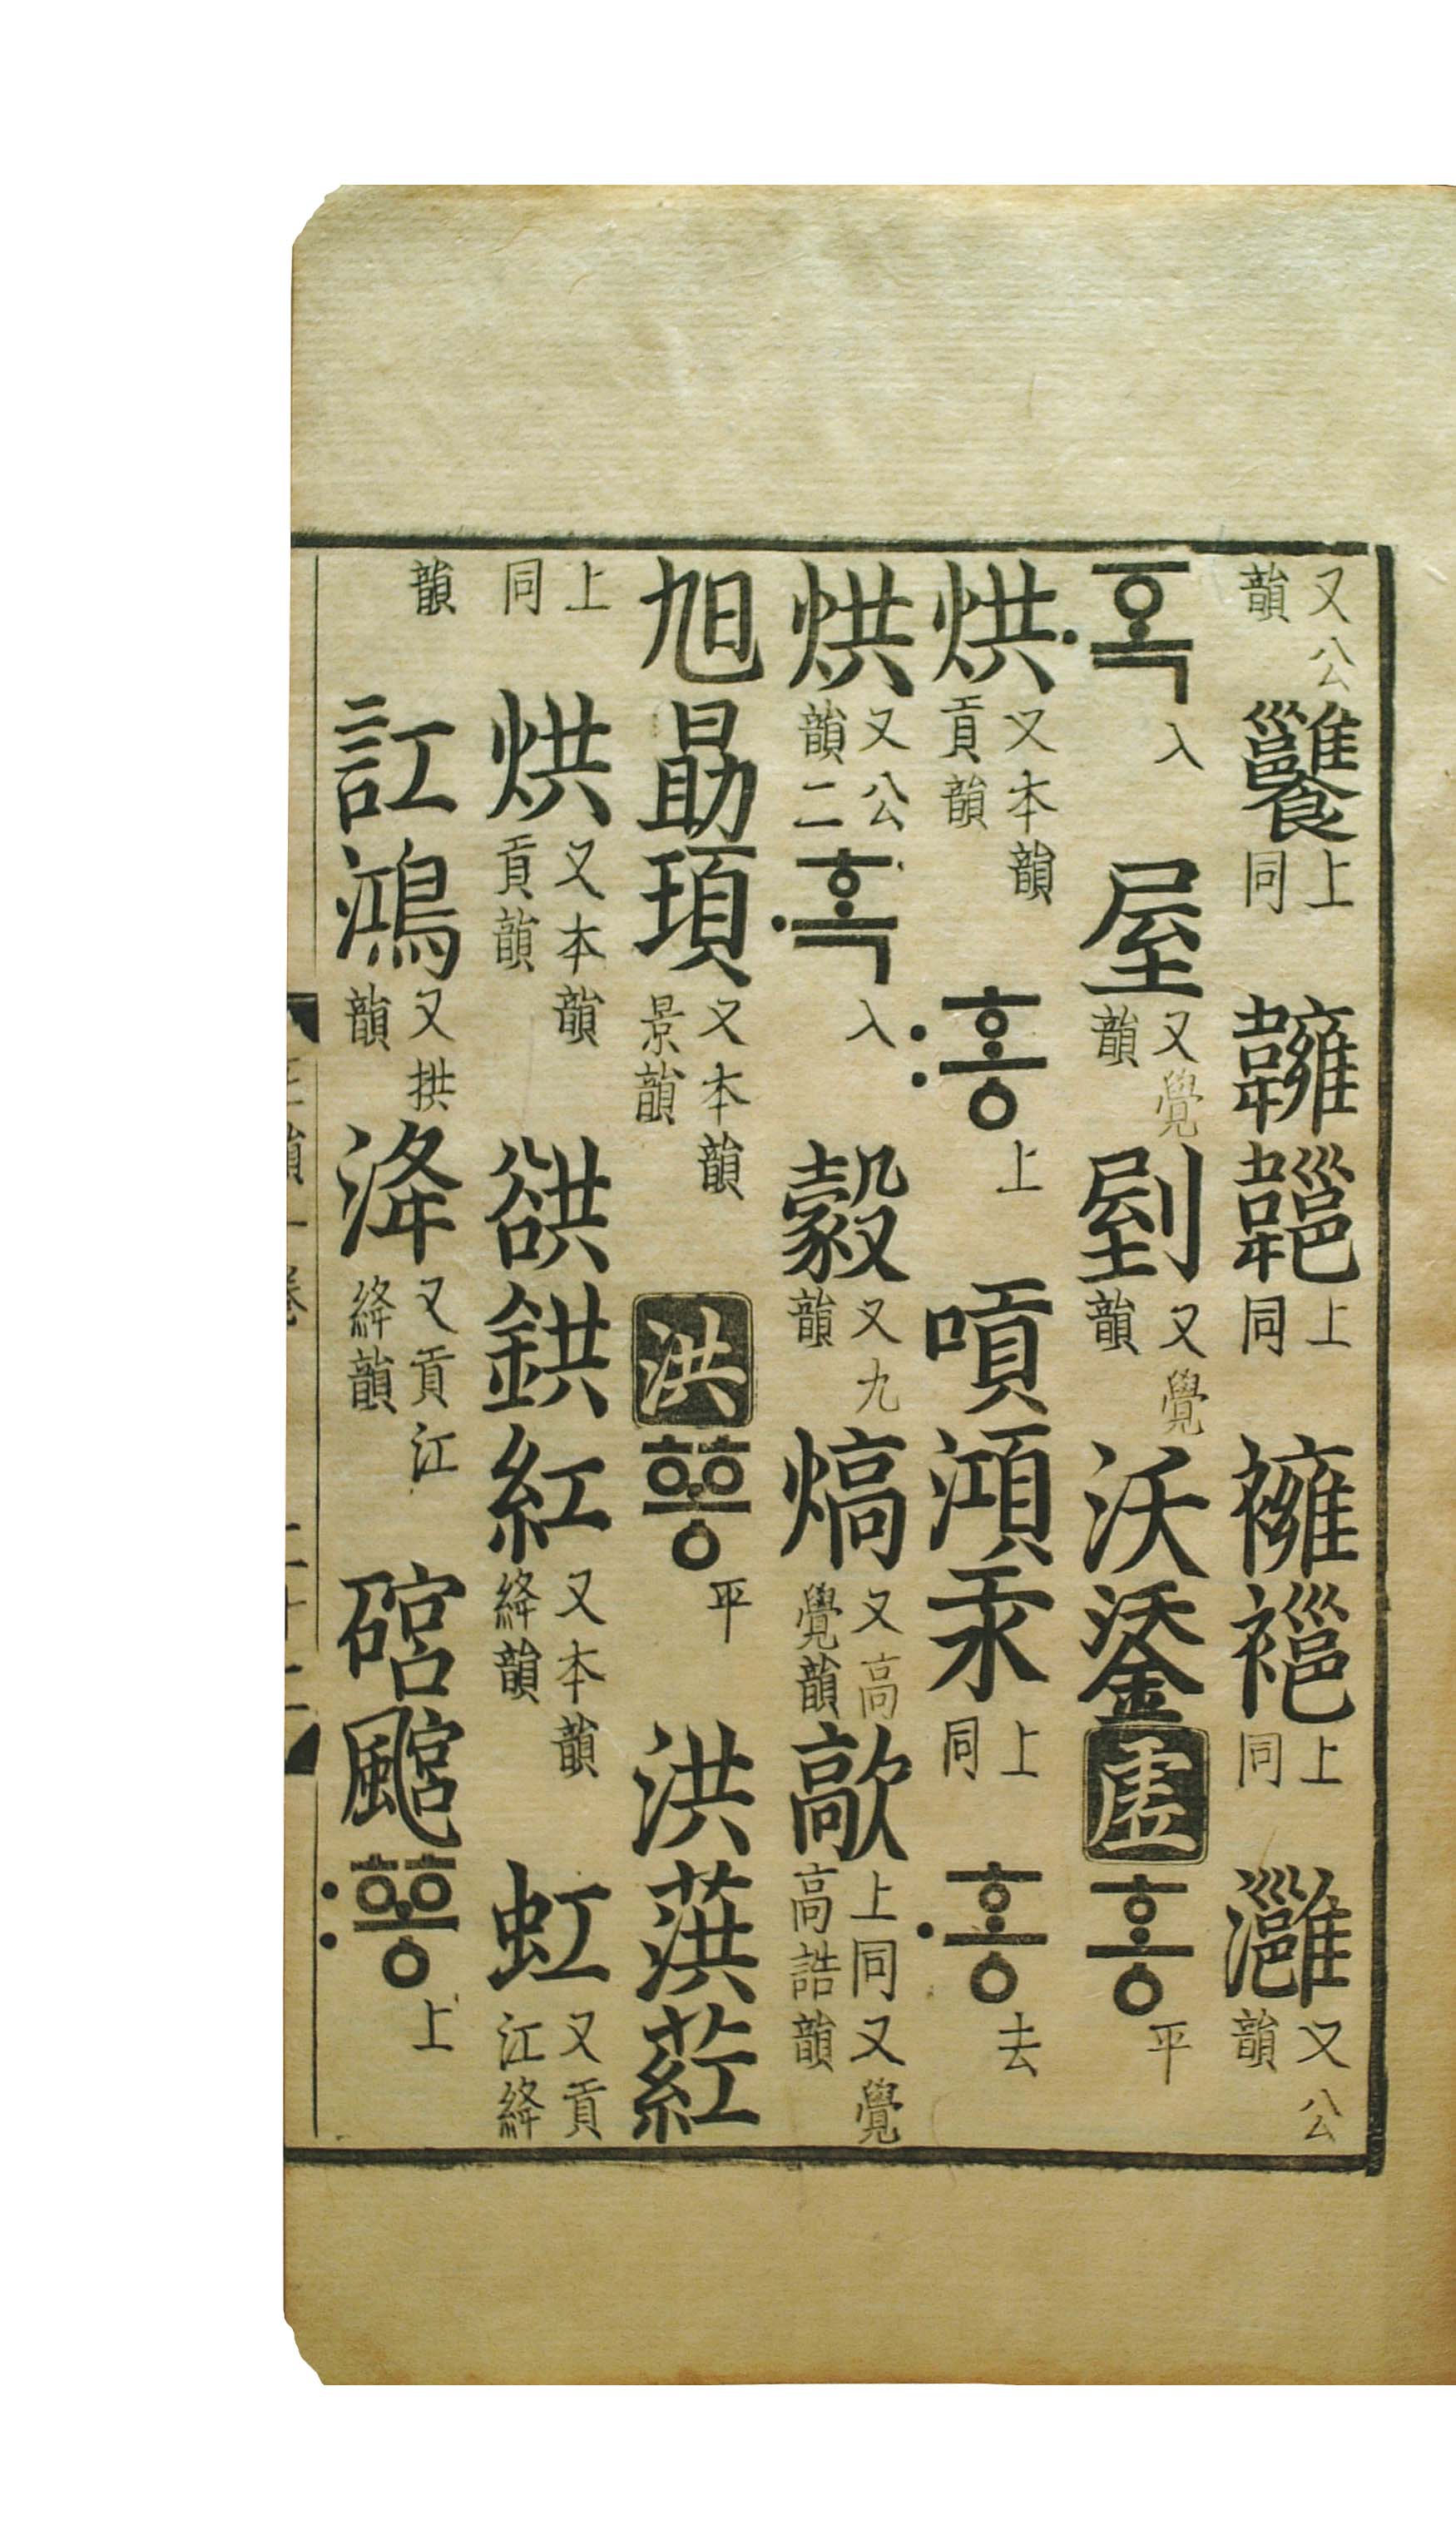 又公韻上同上同上同灉又公韻
혹入屋又覺韻剭又覺韻沃鋈虛홍平
烘又本韻貢韻홍上嗊澒汞上同홍去
烘又公韻二혹入豰又九韻熇又高覺韻歊上同又覺高誥韻
旭勗頊又本韻景韻洪ᅘᅩᆼ平洪葓葒
上同烘又本韻貢韻谼鉷紅又本韻絳韻虹又貢江絳
韻訌鴻又拱韻洚又貢江絳韻ᅘᅩᆼ上